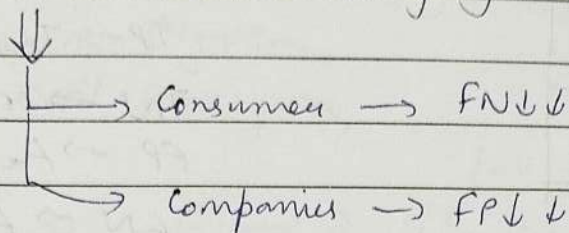 ⇓
→ Consumer → FN↓↓
→ Companies → FP↓↓